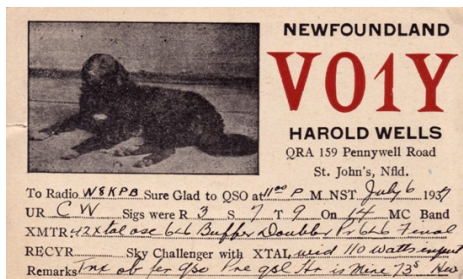 NEWFOUNDLAND
VO1Y
HAROLD WELLS
QRA 159 Pennywell Road
St. John's, Nfld.
To Radio W8KPB Sure Glad to QSO at 11:00 P M NST July 6 1937
UR CW Sigs were R 3 S 7 T 9 On 14 MC Band
XMTR 42 xtal osc 6L6 Buffer Doubler Pr 6L6 Final
RECVR Sky Challenger with XTAL, 110 watts input
Remarks Tnx ob fer qso Pse qsl Hr is Mine 73's